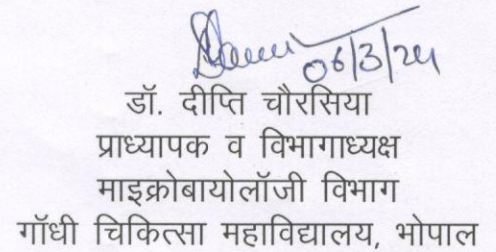 06/3/24
डॉ. दीप्ति चौरसिया
प्राध्यापक व विभागाध्यक्ष
माइक्रोबायोलॉजी विभाग
गॉधी चिकित्सा महाविद्यालय, भोपाल